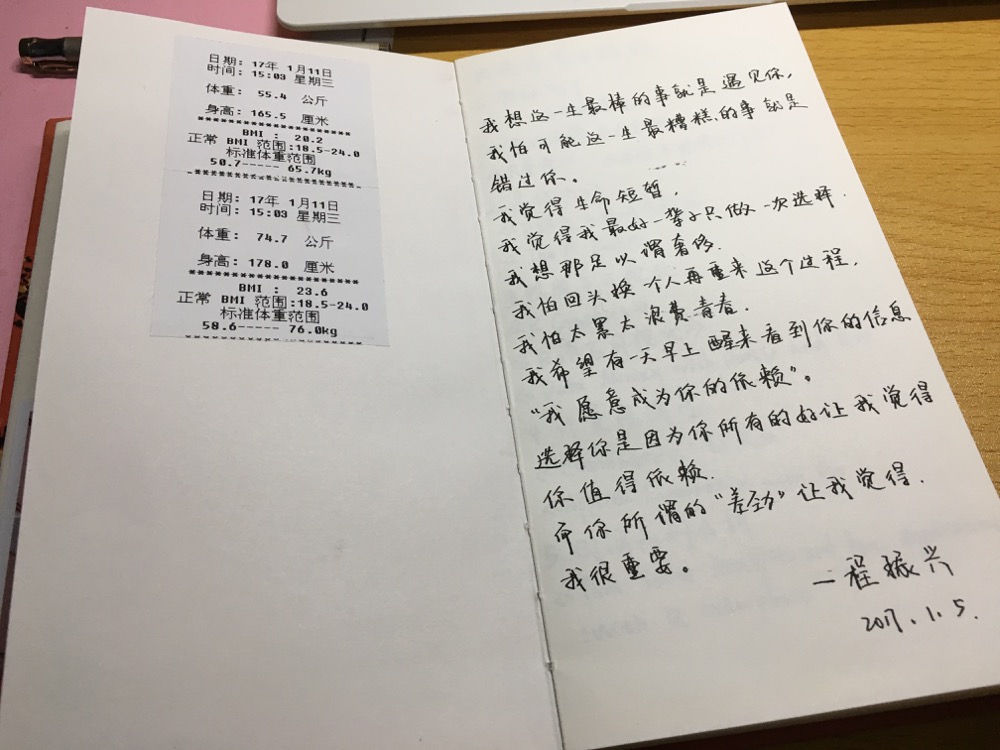 日期: 17年 1月11日
时间: 15:03 星期三
体重: 55.4 公斤
身高: 165.5 厘米
********************
BMI : 20.2
正常 BMI 范围:18.5-24.0
标准体重范围
50.7----- 65.7kg
日期: 17年 1月11日
时间: 15:03 星期三
体重: 74.7 公斤
身高: 178.0 厘米
********************
BMI : 23.6
正常 BMI 范围:18.5-24.0
标准体重范围
58.6----- 76.0kg
我想这一生最棒的事就是遇见你,
我怕可能这一生最糟糕的事就是
错过你。
我觉得生命短暂,
我觉得我最好一辈子只做一次选择.
我想那足以谓奢侈.
我怕回头换一个人再重来这个过程,
我怕太累太浪费青春.
我希望有一天早上醒来看到你的信息
“我愿意成为你的依赖”。
选择你是因为你所有的好让我觉得
你值得依赖.
而你所谓的“差劲”让我觉得.
我很重要。
—程振兴
2017.1.5.